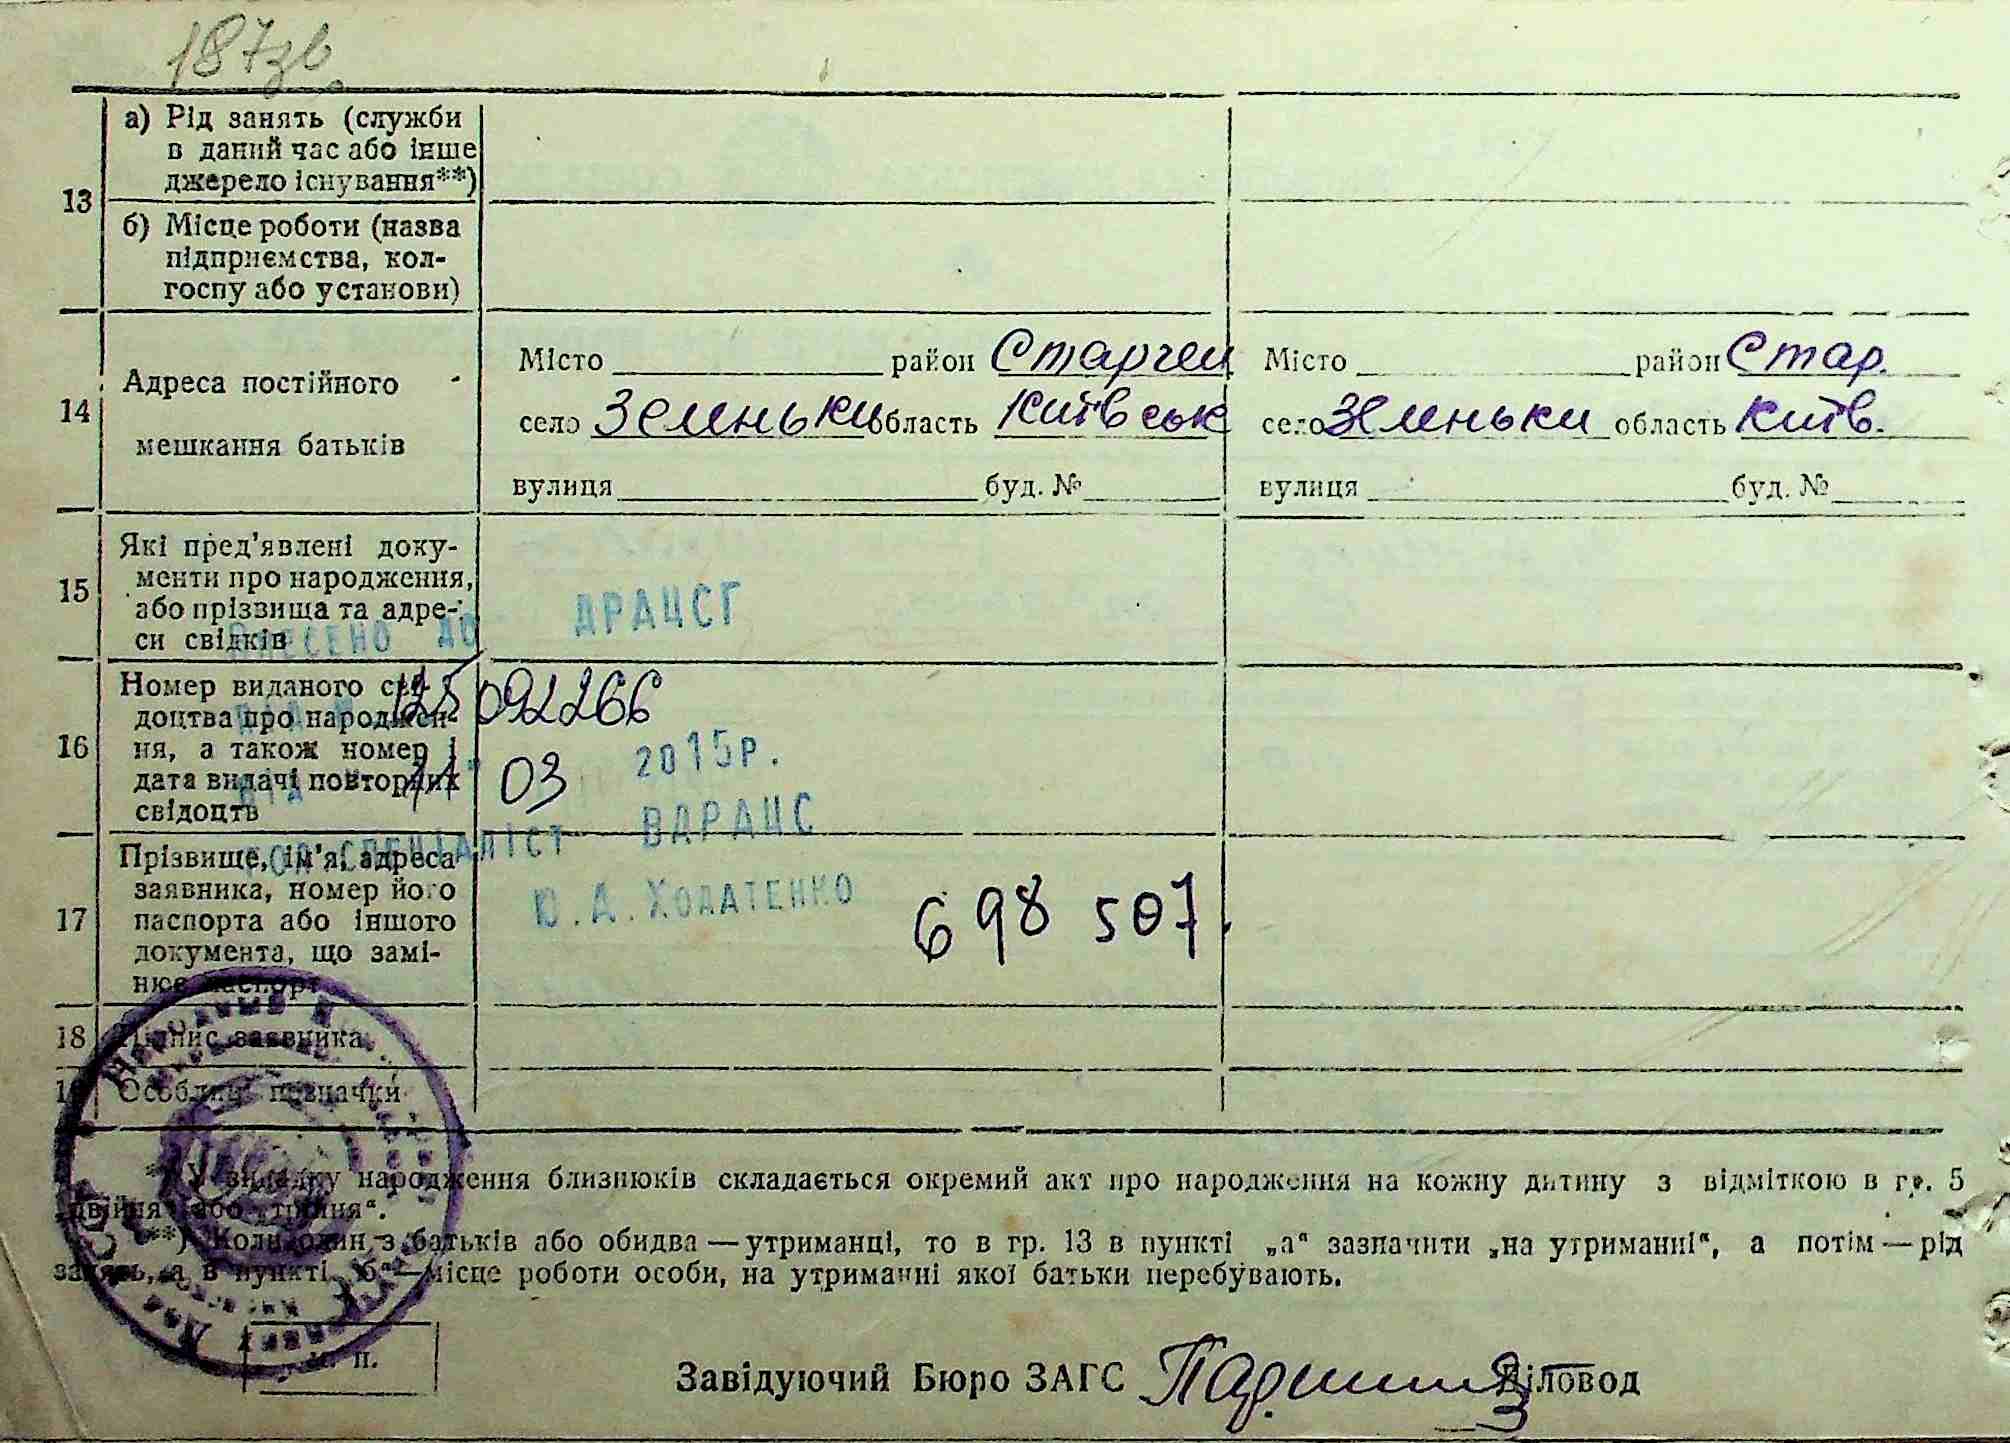 187зв.
13
а) Рід занять (служби
в даний час або інше
джерело існування**)
б) Місце роботи (назва
підприємства, кол-
госпу або установи)
14
Адреса постійного
мешкання батьків
Місто район Старчен
село Зеленьки область Київськ
вулиця буд. №
Місто район Стар.
село Зеленьки область Київ.
вулиця буд. №
15
Які пред'явлені доку-
менти про народження,
або прізвища та адре-
си свідків
ВНЕСЕНО ДО ДРАЦСГ
16
Номер виданого сві-
доцтва про народжен-
ня, а також номер і
дата видачі повторних
свідоцтв
125092266
11 03 2015р.
СПЕЦІАЛІСТ ВДРАЦС
Ю.А.ХОДАТЕНКО
17
Прізвище, ім'я, адреса
заявника, номер його
паспорта або іншого
документа, що замі-
нює паспорт
698 507.
18 Підпис заявника
19 Особливі позначки
*) У випадку народження близнюків складається окремий акт про народження на кожну дитину з відміткою в гр. 5
„двійня“ або „трійня“.
**) Коли один з батьків або обидва — утриманці, то в гр. 13 в пункті „а“ зазначити „на утриманні“, а потім — рід
занять, а в пункті „б“ — місце роботи особи, на утриманні якої батьки перебувають.
М. П.
Завідуючий Бюро ЗАГС Діловод